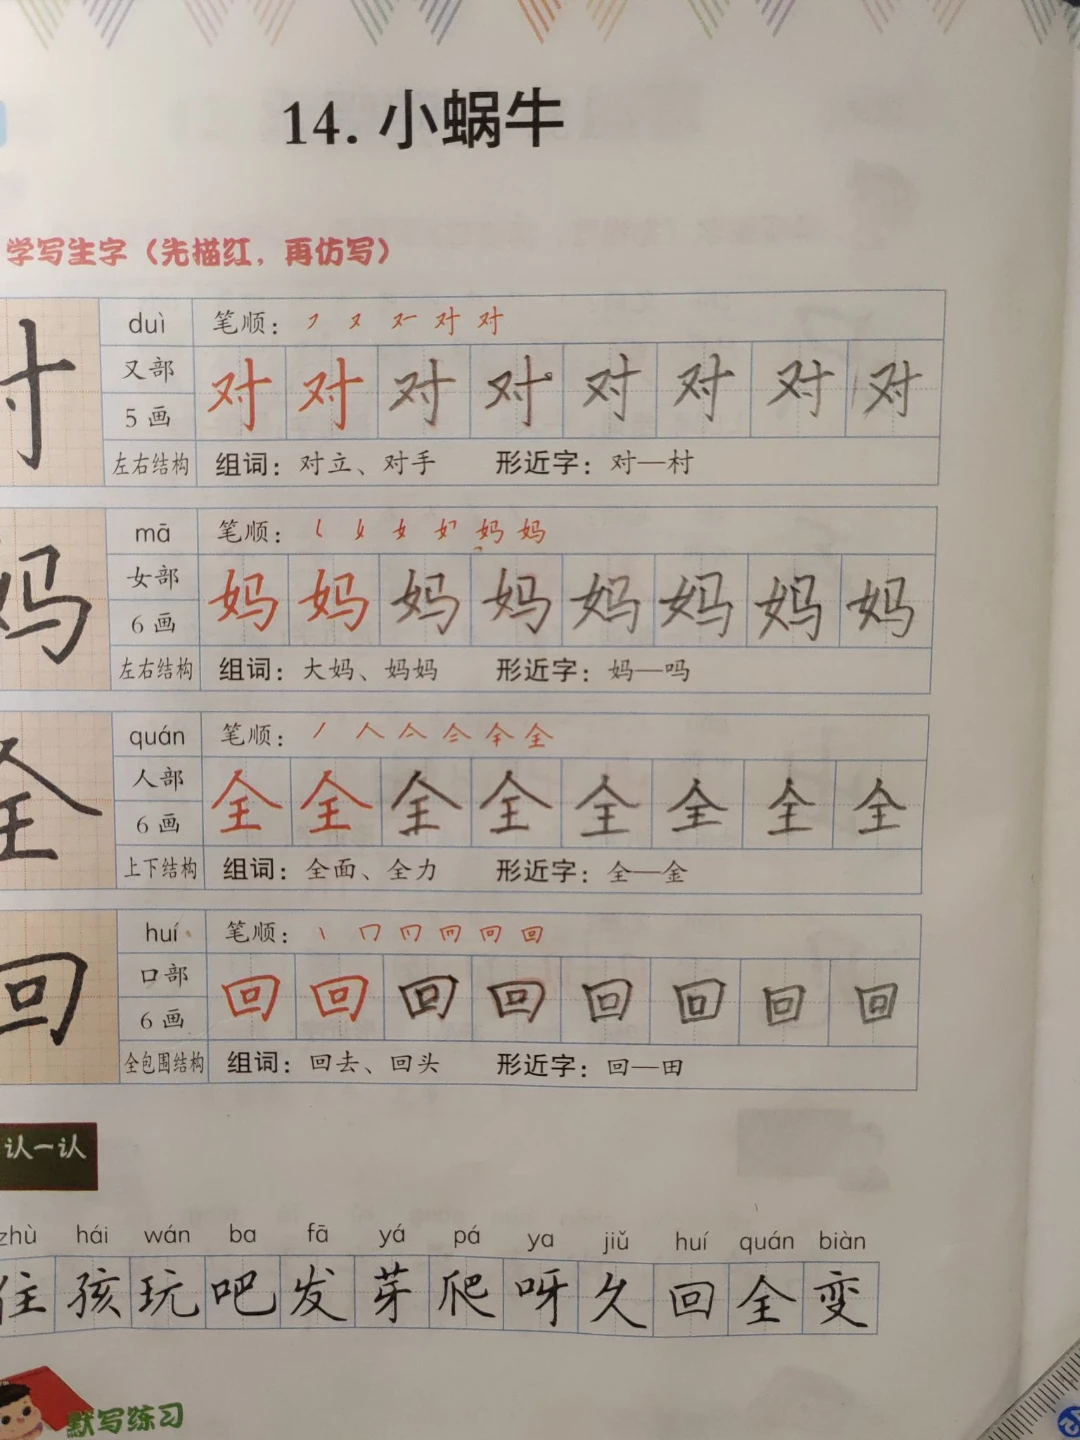 14. 小蜗牛
学写生字（先描红，再仿写）
对 duì 笔顺：
又部 对 对 对 对 对 对 对 对
5 画
左右结构 组词：对立、对手 形近字：对—村
妈 mā 笔顺：
女部 妈 妈 妈 妈 妈 妈 妈 妈
6 画
左右结构 组词：大妈、妈妈 形近字：妈—吗
全 quán 笔顺：
人部 全 全 全 全 全 全 全 全
6 画
上下结构 组词：全面、全力 形近字：全—金
回 huí 笔顺：
口部 回 回 回 回 回 回 回 回
6 画
全包围结构 组词：回去、回头 形近字：回—田
认一认
zhù hái wán ba fā yá pá ya jiǔ huí quán biàn
住 孩 玩 吧 发 芽 爬 呀 久 回 全 变
默写练习